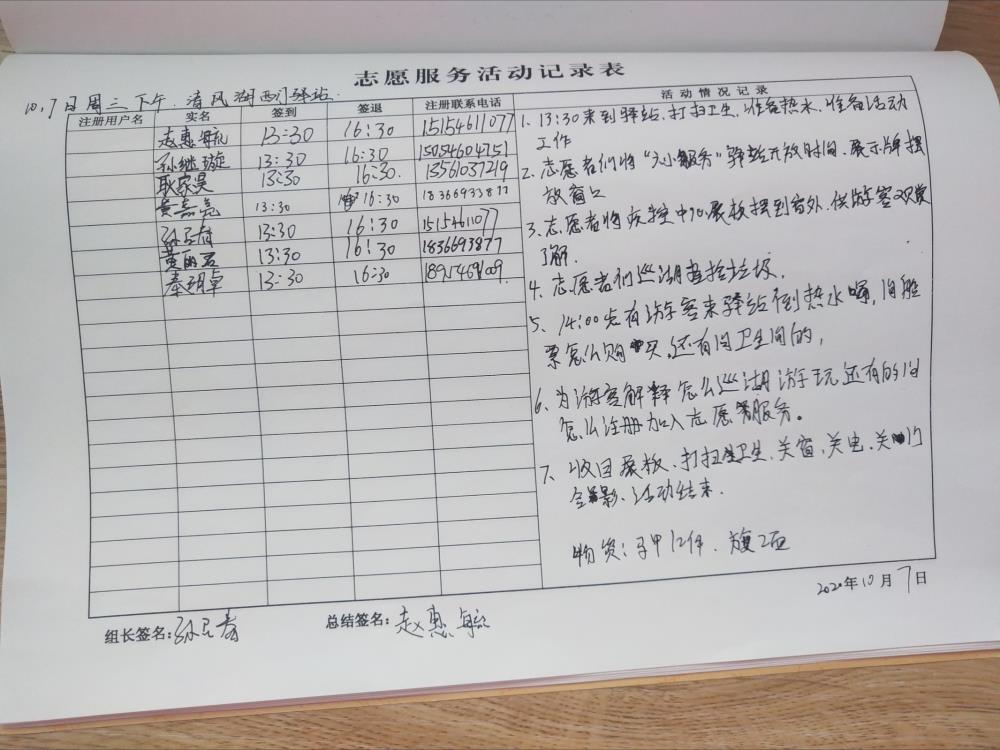 志愿服务活动记录表
10.7日周三下午.清风湖西门驿站.
注册用户名 实名 签到 签退 注册联系电话 活动情况记录
赵惠航 13:30 16:30 15154611077
孙继璇 13:30 16:30 15054604751
耿家昊 13:30 16:30. 13561037219
黄熹亮 13:30 16:30 18366933877
13:30 16:30 15154611077
黄丽君 13:30 16:30 1836693877
秦玥卓 13:30 16:30
1. 13:30来到驿站.打扫卫生,准备热水.准备活动
工作
2. 志愿者们将“六小服务”驿站开放时间.展示牌摆
放窗口
3. 志愿者将疾控中心展板摆到窗外.供游客观赏
了解.
4. 志愿者们巡湖查捡垃圾.
5、14:00左有游客来驿站倒热水喝,问船
票怎么购买,还有问卫生间的,
6、为游客解释怎么巡湖游玩还有的问
怎么注册加入志愿服务。
7、收回展板、打扫卫生、关窗、关电、关门
合影、活动结束.
物资:马甲12件.旗2面
2020年10月7日
组长签名: 总结签名:赵惠航